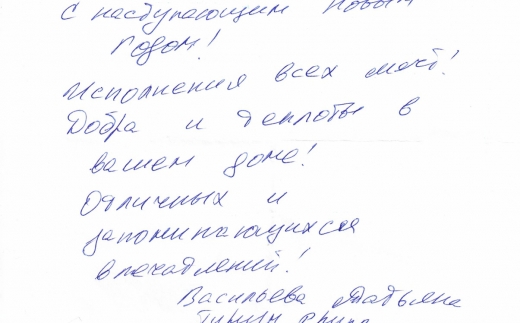 С наступающим Новым
Годом!
Исполнения всех мечт!
Добра и теплоты в
вашем доме!
Отличных и
запоминающихся
впечатлений!
Васильева Татьяна